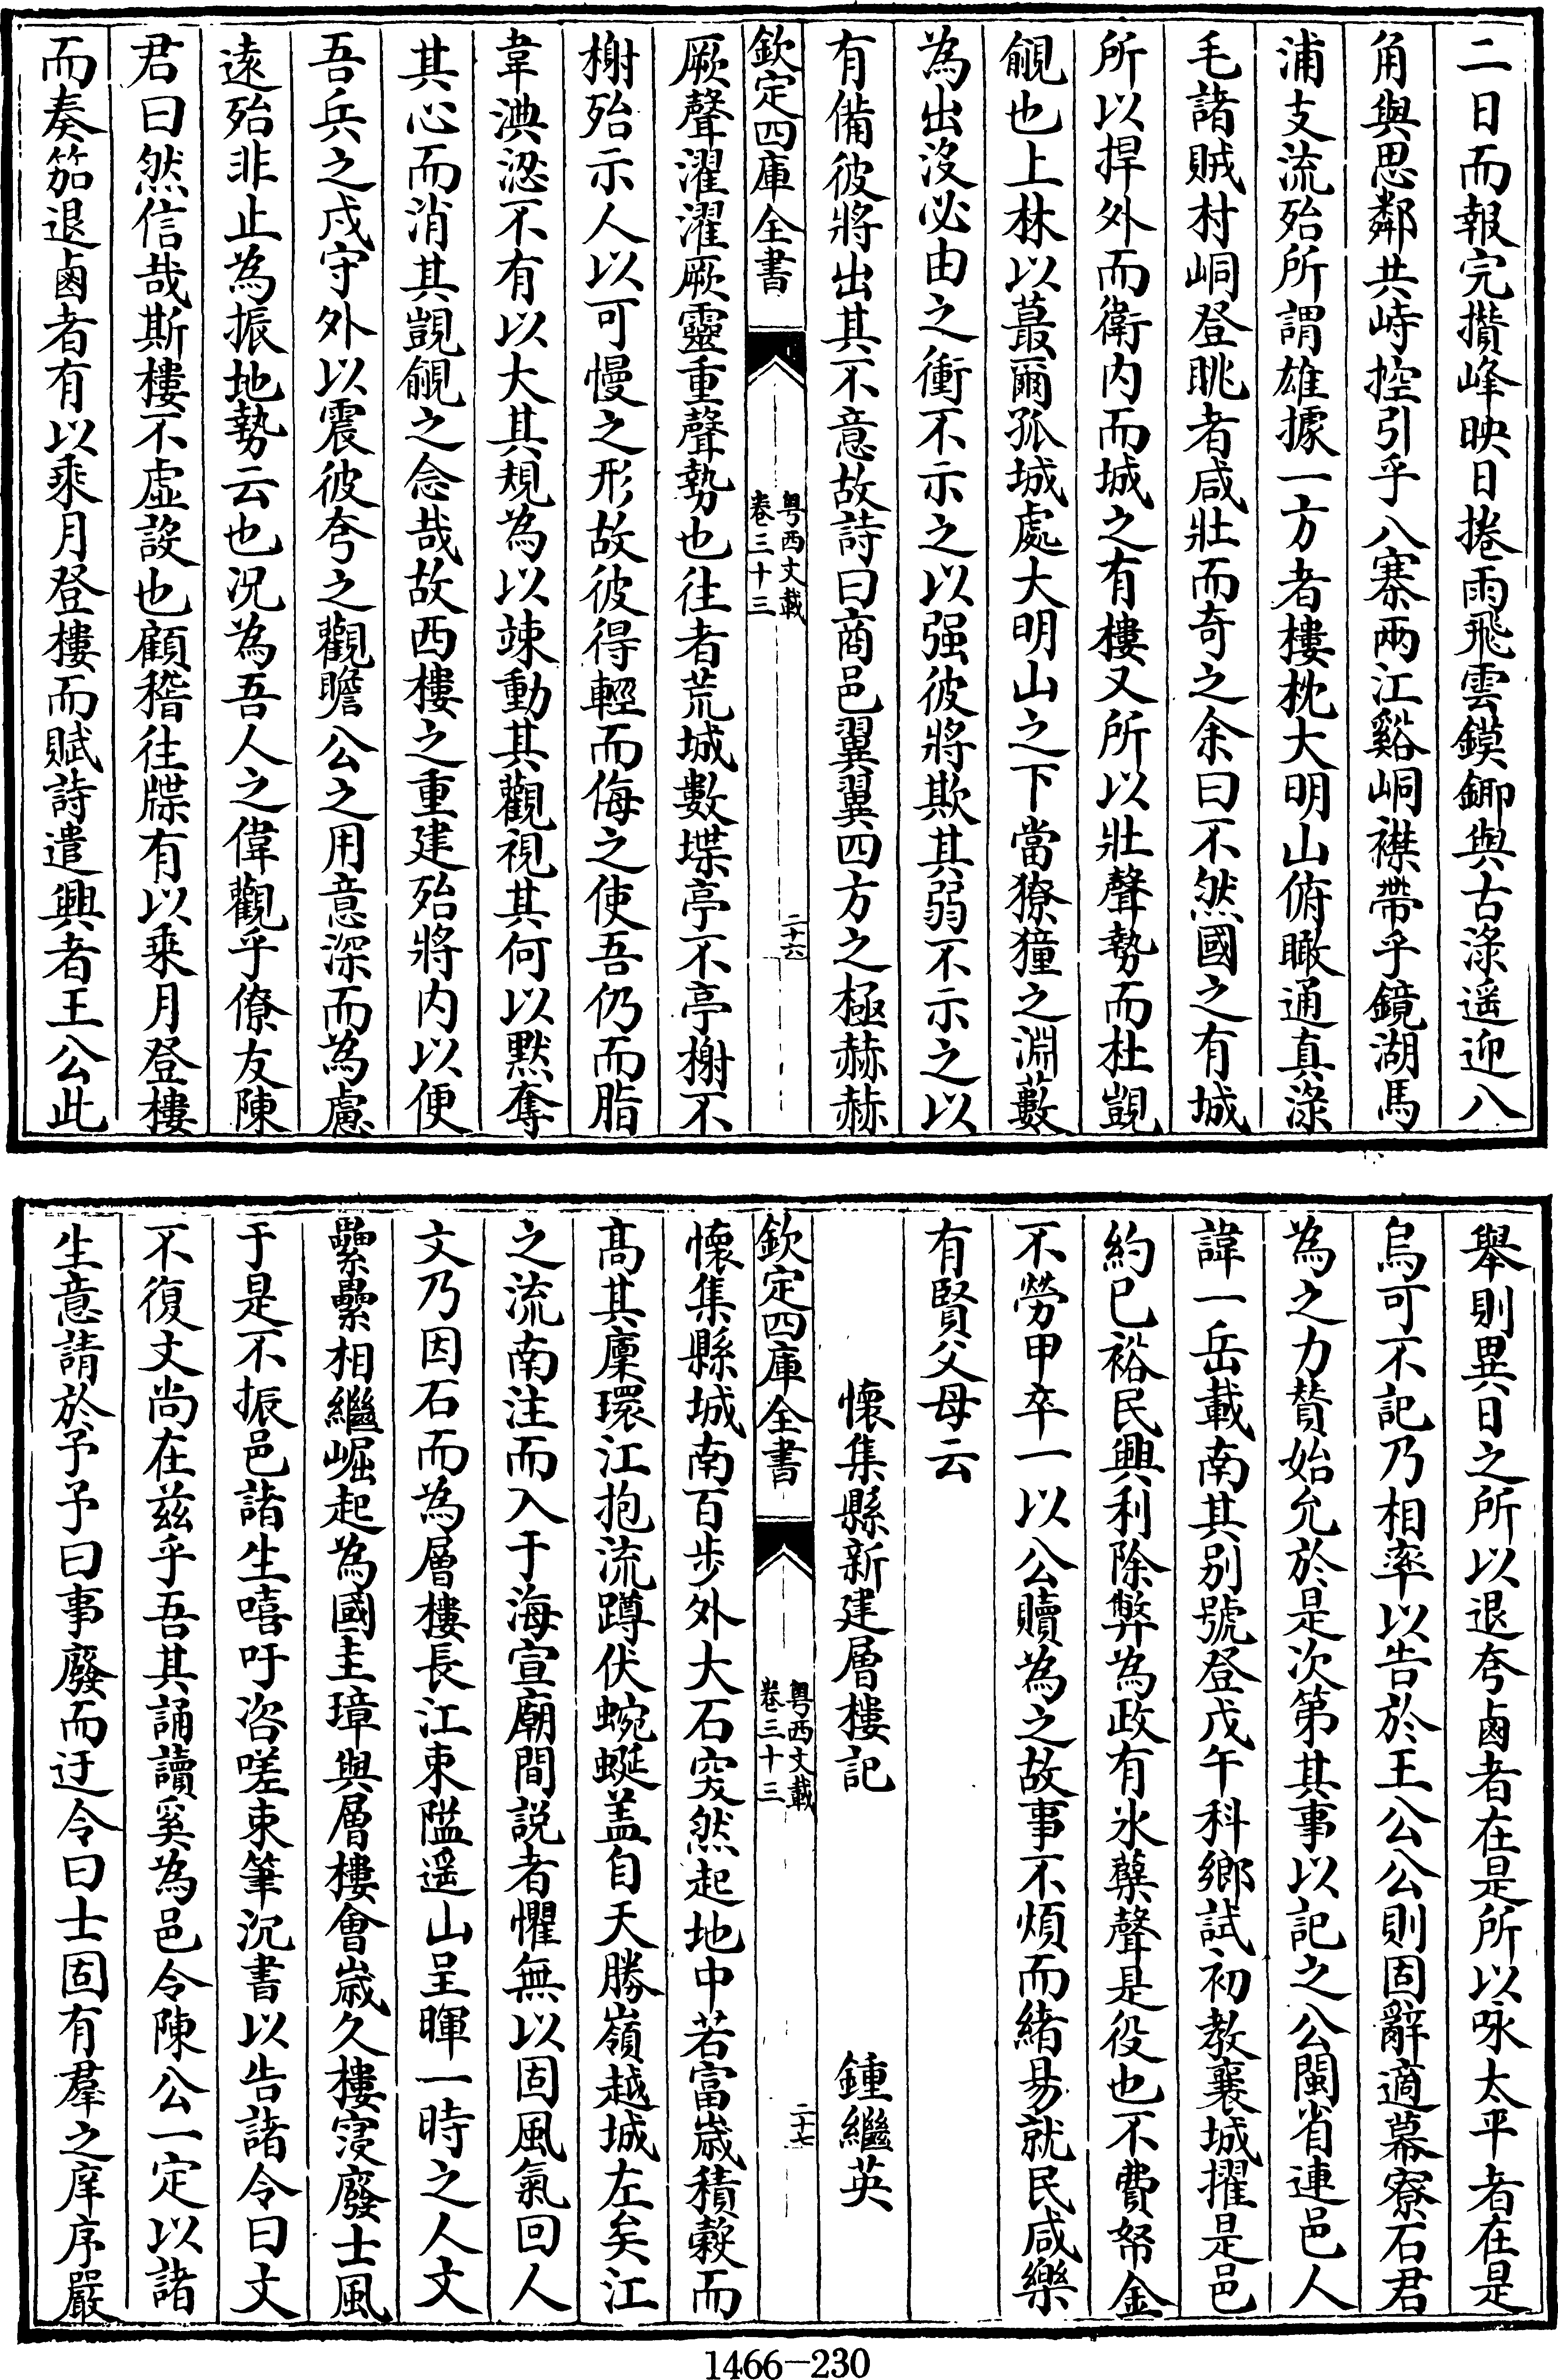 二日而報完攅峰映日捲雨飛雲鏌鎁與古淥遥迎八
角與思鄰共峙控引乎八寨兩江谿峒襟帶乎鏡湖馬
浦支流殆所謂雄據一方者樓枕大明山俯瞰通真淥
毛諸賊村峒登眺者咸壯而奇之余曰不然國之有城
所以捍外而衛内而城之有樓又所以壯聲勢而杜覬
覦也上林以蕞爾孤城處大明山之下當獠獞之淵藪
為出没必由之衝不示之以强彼將欺其弱不示之以
有備彼將出其不意故詩曰商邑翼翼四方之極赫赫
欽定四庫全書
粤西文載
卷三十三
二十六
厥聲濯濯厥靈重聲勢也往者荒城數堞亭不亭榭不
榭殆示人以可慢之形故彼得輕而侮之使吾仍而脂
韋淟涊不有以大其規為以竦動其觀視其何以黙奪
其心而消其覬覦之念哉故西樓之重建殆將内以便
吾兵之戍守外以震彼夸之觀瞻公之用意深而為慮
逺殆非止為振地勢云也况為吾人之偉觀乎僚友陳
君曰然信哉斯樓不虚設也顧稽往牒有以乘月登樓
而奏笳退鹵者有以乘月登樓而賦詩遣興者王公此
舉則異日之所以退夸鹵者在是所以咏太平者在是
烏可不記乃相率以告於王公公則固辭適幕寮石君
為之力賛始允於是次第其事以記之公閩省連邑人
諱一岳載南其别號登戊午科鄉試初教襄城擢是邑
約已裕民興利除弊為政有氷蘗聲是役也不費帑金
不勞甲卒一以公贖為之故事不煩而緒易就民咸樂
有賢父母云
懷集縣新建層樓記
鍾繼英
欽定四庫全書
粤西文載
卷三十三
二十七
懷集縣城南百步外大石突然起地中若富歳積榖而
髙其廩環江抱流蹲伏蜿蜒盖自天勝嶺越城左矣江
之流南注而入于海宣廟間説者懼無以固風氣回人
文乃因石而為層樓長江束隘遥山呈暉一時之人文
纍纍相繼崛起為國圭璋與層樓會歳久樓寖廢士風
于是不振邑諸生嘻吁咨嗟束筆沉書以告諸令曰文
不復文尚在兹乎吾其誦讀奚為邑令陳公一定以諸
生意請於予予曰事廢而迂令曰士固有羣之庠序嚴
1466-230